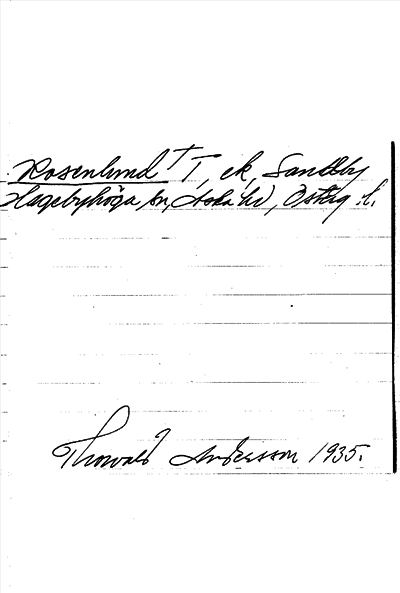 Rosenlund † T, ek, Sandby
Hagebyhöga sn, Aska hd, Österg. l.
Thorvald Andersson 1935.